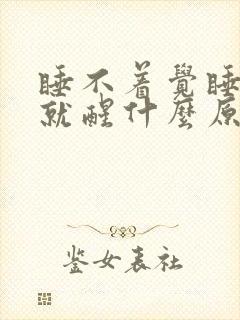 睡不着覺睡
就醒什麼原
鉴女表社